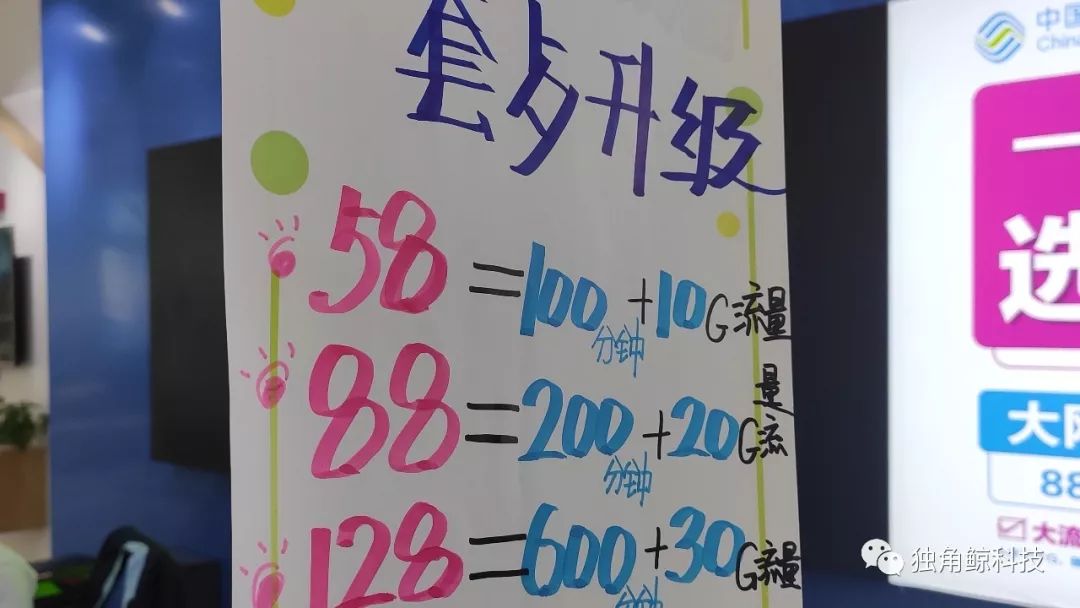 套歺升级
58=100分钟+10G流量
88=200分钟+20G流量
128=600分钟+30G流量
中国
China
一
选
大
88
大流
独角鲸科技